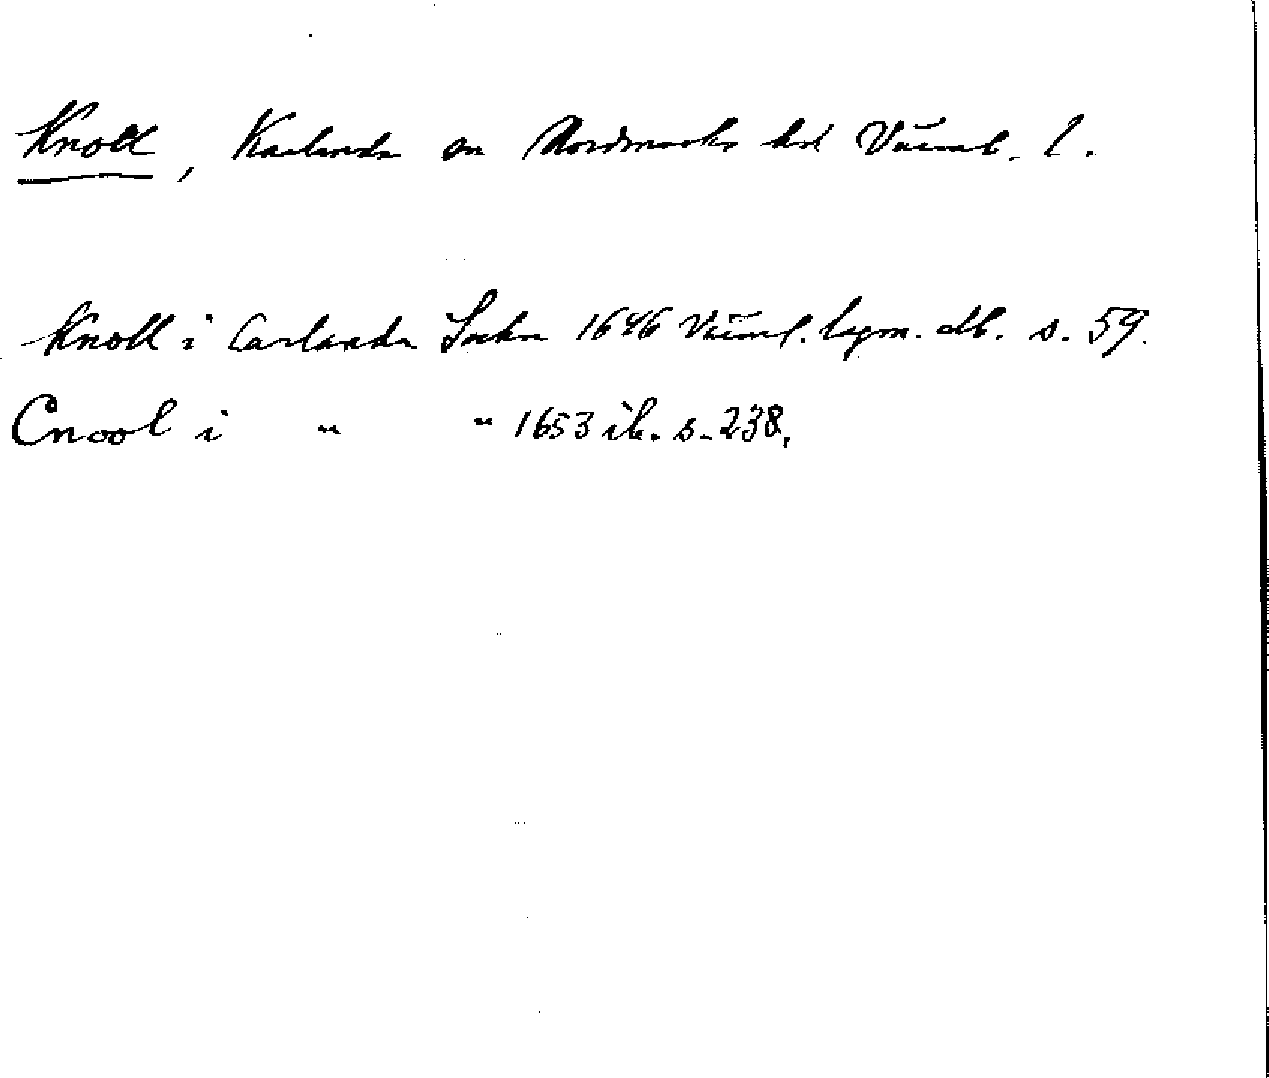 Knoll, Karlanda sn Nordmarks hd Värml. l.
Knoll i Carlanda Sokn 1646 Värml. db. s. 59.
Cnool i " " 1653 ib. s. 238.